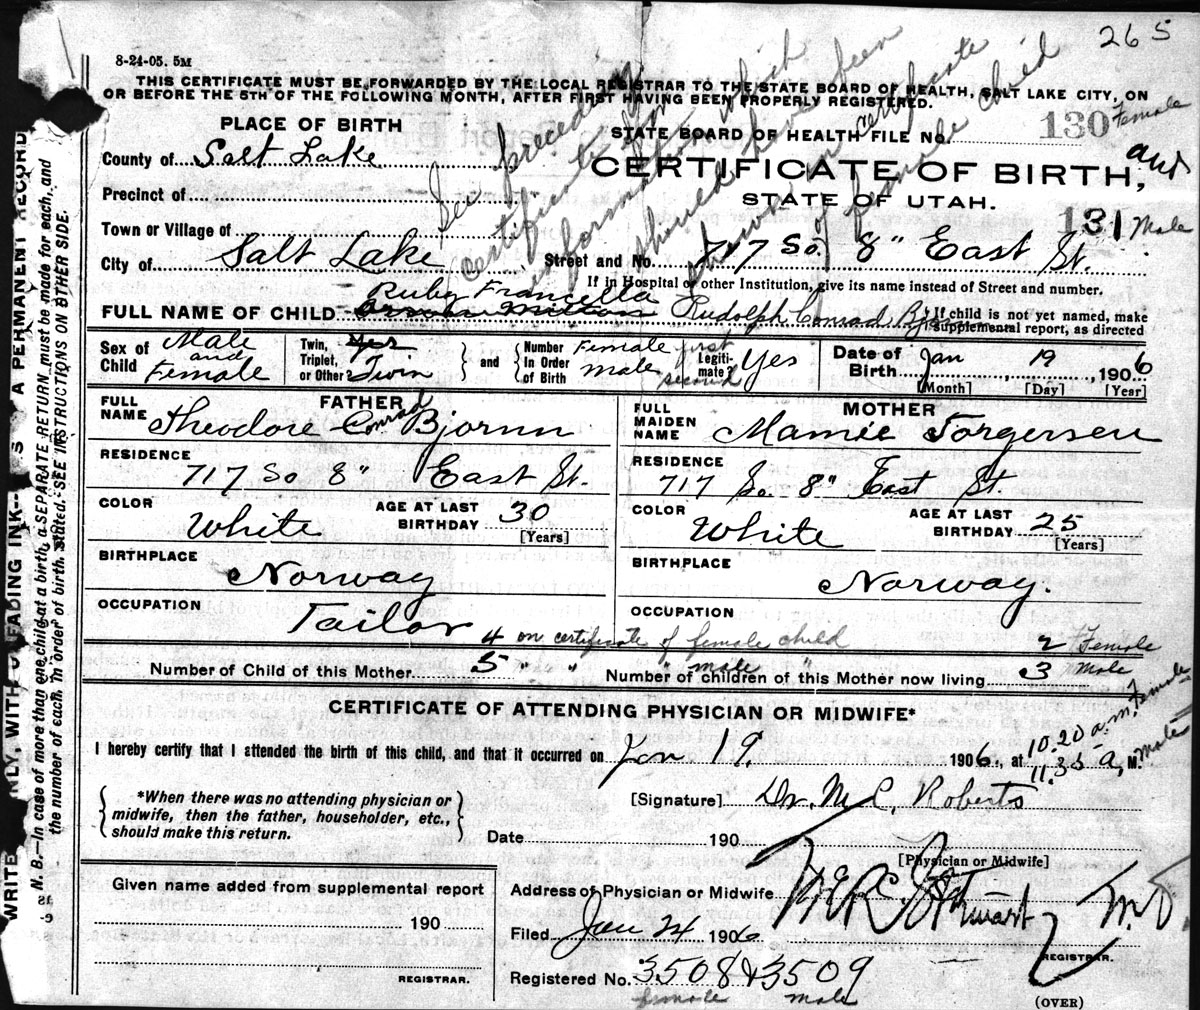 265
8-24-05. 5M
THIS CERTIFICATE MUST BE FORWARDED BY THE LOCAL REGISTRAR TO THE STATE BOARD OF HEALTH, SALT LAKE CITY, ON
OR BEFORE THE 5TH OF THE FOLLOWING MONTH, AFTER FIRST HAVING BEEN PROPERLY REGISTERED.
See preceding
certificate for
information which
should have been
shown on certificate
of female child
PLACE OF BIRTH
STATE BOARD OF HEALTH FILE No. 130 Female
County of Salt Lake
CERTIFICATE OF BIRTH, and
Precinct of
STATE OF UTAH.
131 Male
Town or Village of
City of Salt Lake Street and No. 717 So. 8" East St.
If in Hospital or other Institution, give its name instead of Street and number.
Ruby Francella
FULL NAME OF CHILD Orson Milton Rudolph Conrad
If child is not yet named, make
supplemental report, as directed
Sex of Child Male and Female
Twin, Triplet, or Other? Yes Twin
and
Number In Order of Birth Female first male second
Legitimate? Yes
Date of Birth Jan 19, 1906
[Month] [Day] [Year]
FATHER
FULL NAME Theodore Conrad Bjornn
RESIDENCE
717 So 8" East St.
COLOR White
AGE AT LAST BIRTHDAY 30
[Years]
BIRTHPLACE
Norway
OCCUPATION
Tailor
MOTHER
FULL MAIDEN NAME Mamie Torgersen
RESIDENCE
717 So. 8" East St.
COLOR White
AGE AT LAST BIRTHDAY 25
[Years]
BIRTHPLACE
Norway.
OCCUPATION
4 on certificate of female child 2 Female
Number of Child of this Mother 5 " " " male " Number of children of this Mother now living 3 Male
CERTIFICATE OF ATTENDING PHYSICIAN OR MIDWIFE*
I hereby certify that I attended the birth of this child, and that it occurred on Jan 19. 1906., at 10.20 a.m. Female
11.35 a, M. male
*When there was no attending physician or
midwife, then the father, householder, etc.,
should make this return.
[Signature] Dr. M. C. Roberts
Date 190
[Physician or Midwife]
Given name added from supplemental report
190
REGISTRAR.
Address of Physician or Midwife
Stewart M.D.
Filed Jan 24 1906
REGISTRAR.
Registered No. 3508 & 3509
female male
(OVER)
WRITE NLY, WITH FADING INK— S A PERMANENT RECORD
N. B.—In case of more than one child at a birth, a SEPARATE RETURN must be made for each, and
the number of each, in order of birth, stated. SEE INSTRUCTIONS ON OTHER SIDE.